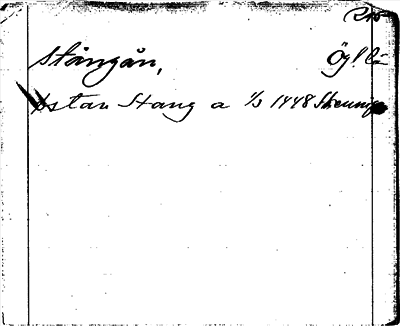 Stångån, Ögl
östan Stang a 1/3 1448 Skenninge